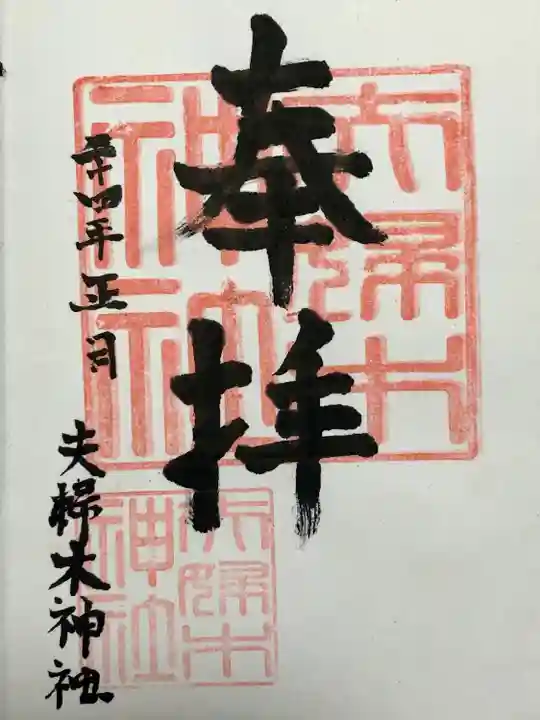 奉拝
二十四年正月
夫婦木神社
夫婦木
神社
夫婦木
神社